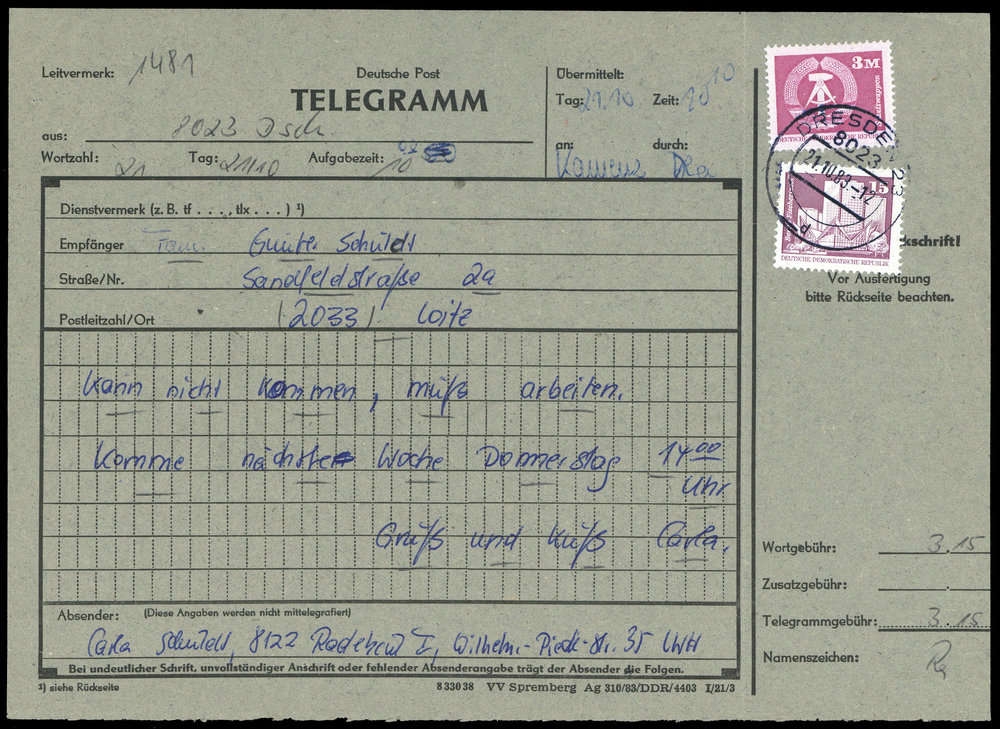 Leitvermerk: 1481
Deutsche Post
TELEGRAMM
aus: 8023 Dsch.
Wortzahl: 21 Tag: 21 10 Aufgabezeit: 10
Übermittelt:
Tag: 21.10. Zeit: 10 10
an: durch:
Kamenz
3 M
DEUTSCHE DEMOKRATISCHE REPUBLIK
DRESDEN 23
8023
21.10.83.-12
15
DEUTSCHE DEMOKRATISCHE REPUBLIK
kschrift!
Vor Ausfertigung
bitte Rückseite beachten.
Dienstvermerk (z. B. tf . . . , tlx . . . ) ¹)
Empfänger Fam. Günter Schuldt
Straße/Nr. Sandfeldstraße 2a
Postleitzahl/Ort 2033 Loitz
Kann nicht kommen, muß arbeiten.
Komme nächste Woche Donnerstag 14 00
Uhr
Gruß und Kuß Carla.
Absender: (Diese Angaben werden nicht mittelegrafiert)
Carla Schuldt, 8122 Radebeul I, Wilhelm-Pieck-Str. 35 LWH
Bei undeutlicher Schrift, unvollständiger Anschrift oder fehlender Absenderangabe trägt der Absender die Folgen.
¹) siehe Rückseite 8 330 38 VV Spremberg Ag 310/83/DDR/4403 I/21/3
Wortgebühr: 3.15
Zusatzgebühr:
Telegrammgebühr: 3.15
Namenszeichen: